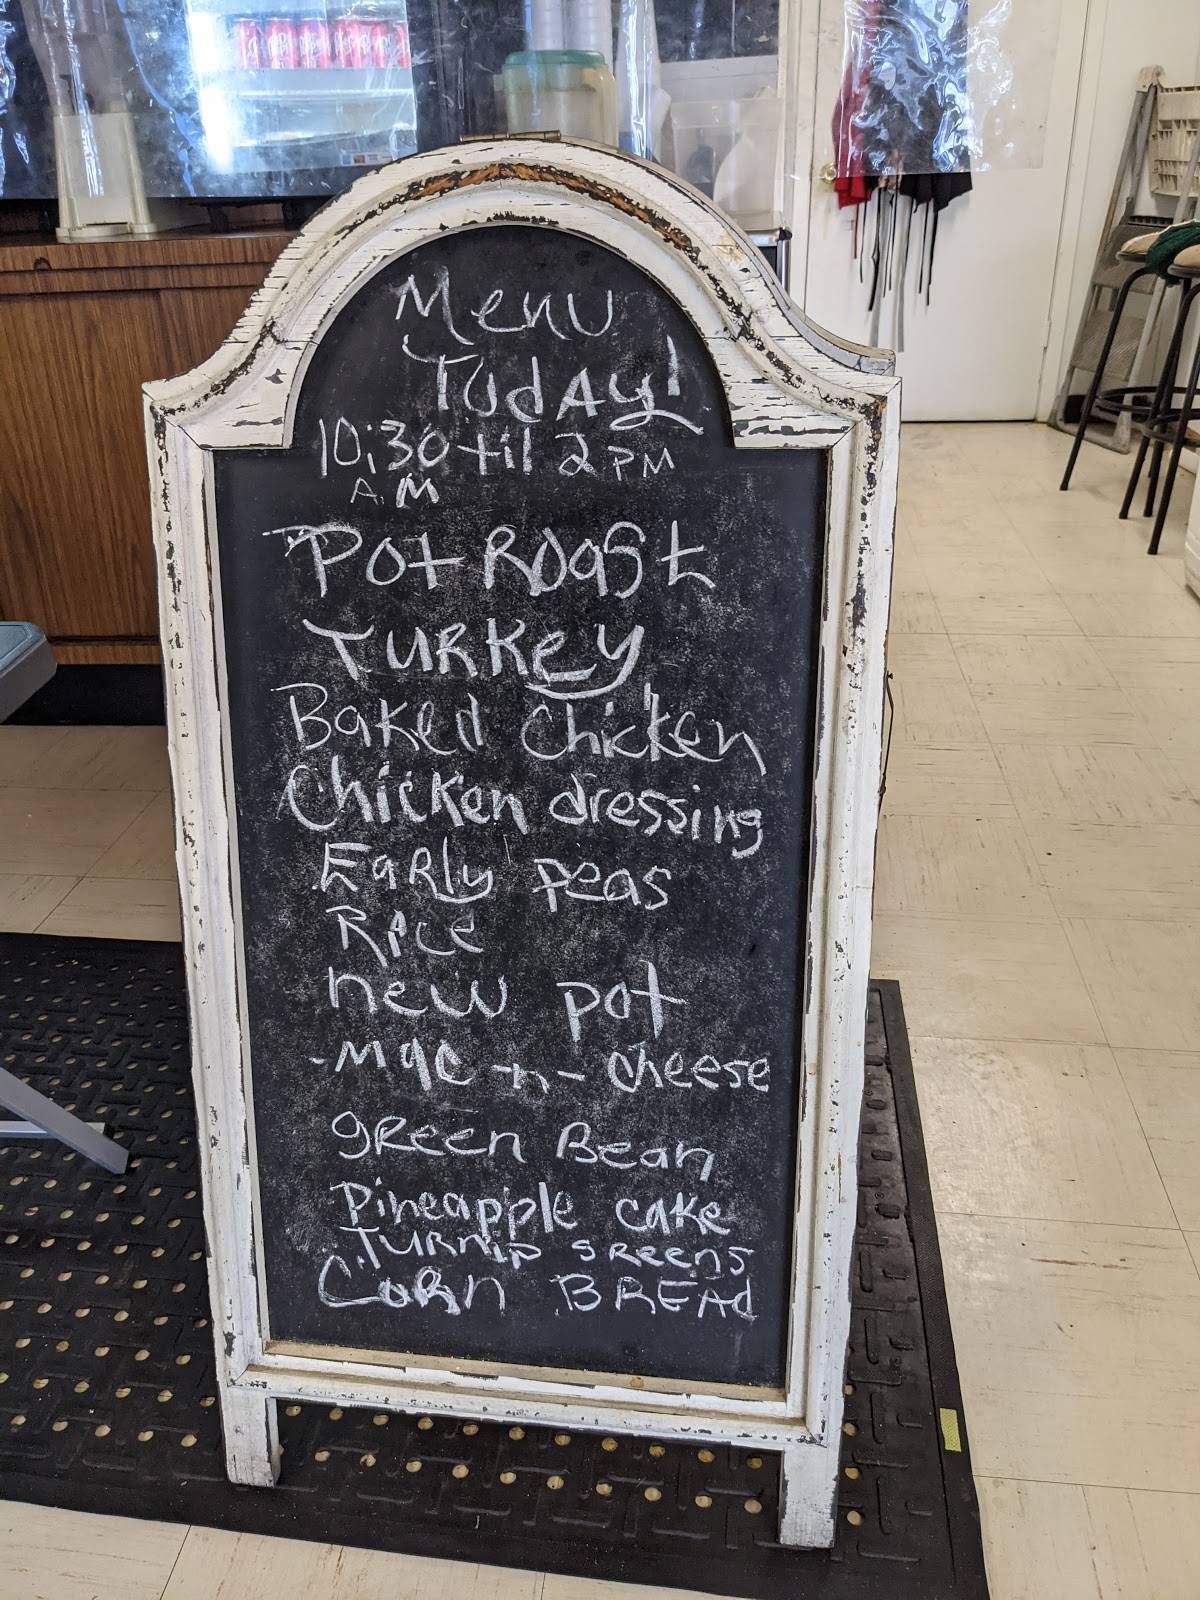 Menu
Today!
10:30 til 2 PM
A.M
Pot Roast
Turkey
Baked Chicken
Chicken dressing
Early peas
Rice
new pot
-mac-n-cheese
green Bean
Pineapple cake
Turnip greens
Corn BREAd